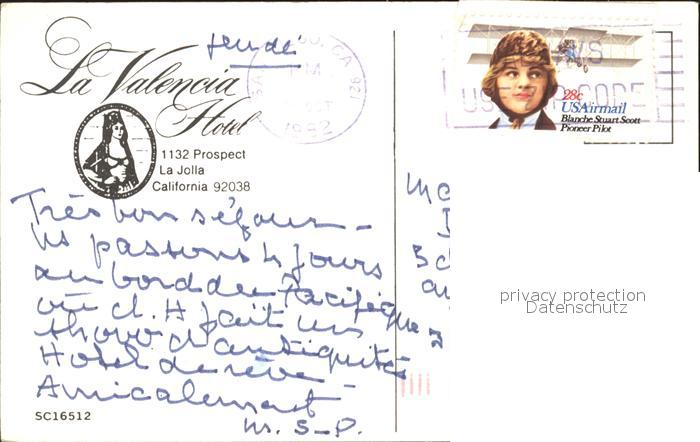 jeudi
La Valencia
Hotel
1132 Prospect
La Jolla
California 92038
CA 921
1982
US
28c
USAirmail
Blanche Stuart Scott
Pioneer Pilot
Très bon séjour -
Ns passons 4 jours
au bord du Pacifique
où d. H fait un
show d'antiquités
Hotel de rêve -
Amicalement
M. S-P.
SC16512
privacy protection
Datenschutz